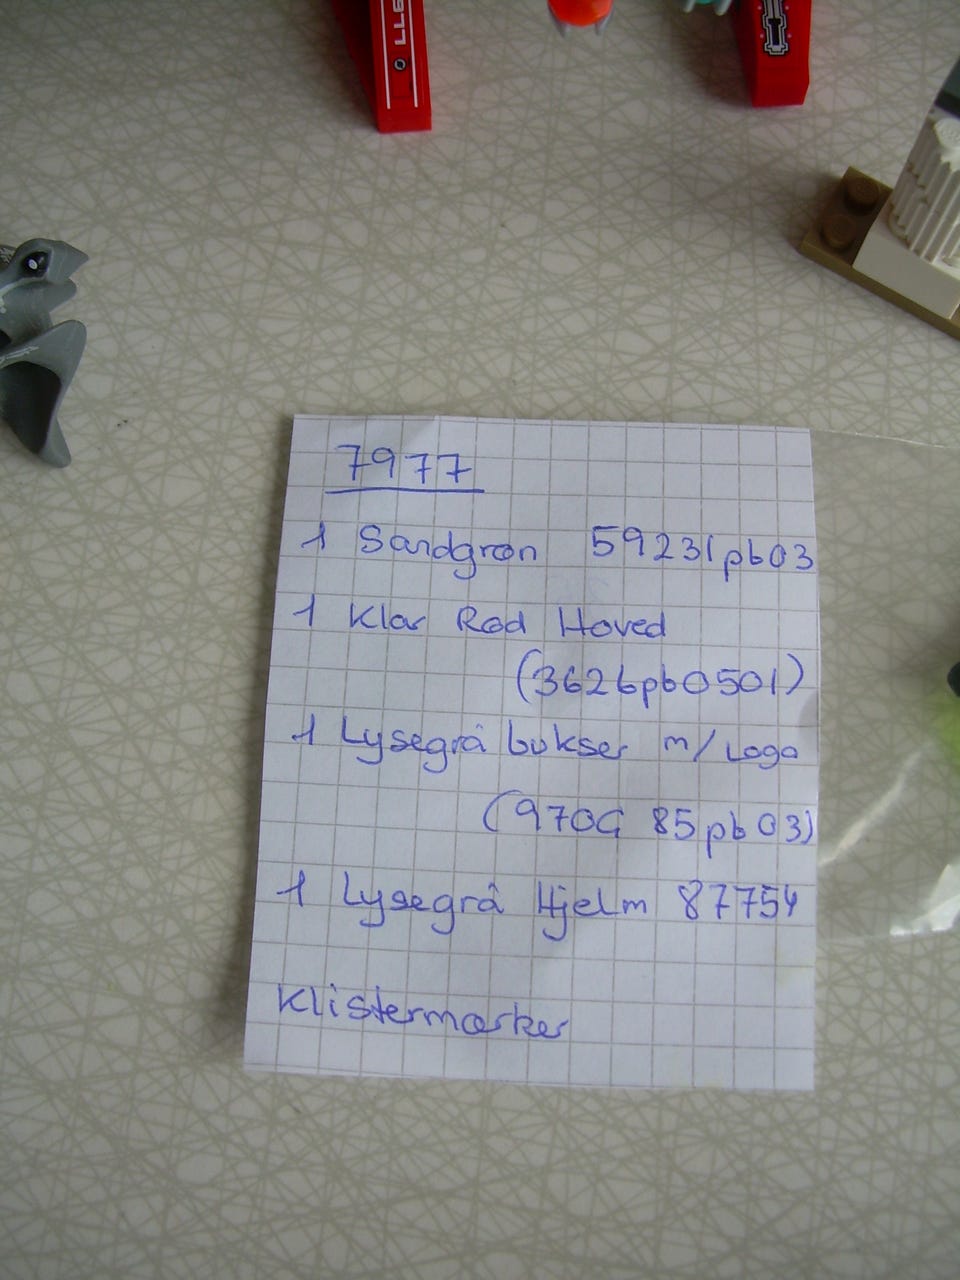 LL6
7977
1 Sandgrøn 59231pb03
1 Klar Rød Hoved
(3626bpb0501)
1 Lysegrå bukser m/Logo
(970c85pb03)
1 Lysegrå Hjelm 87754
Klistermærker